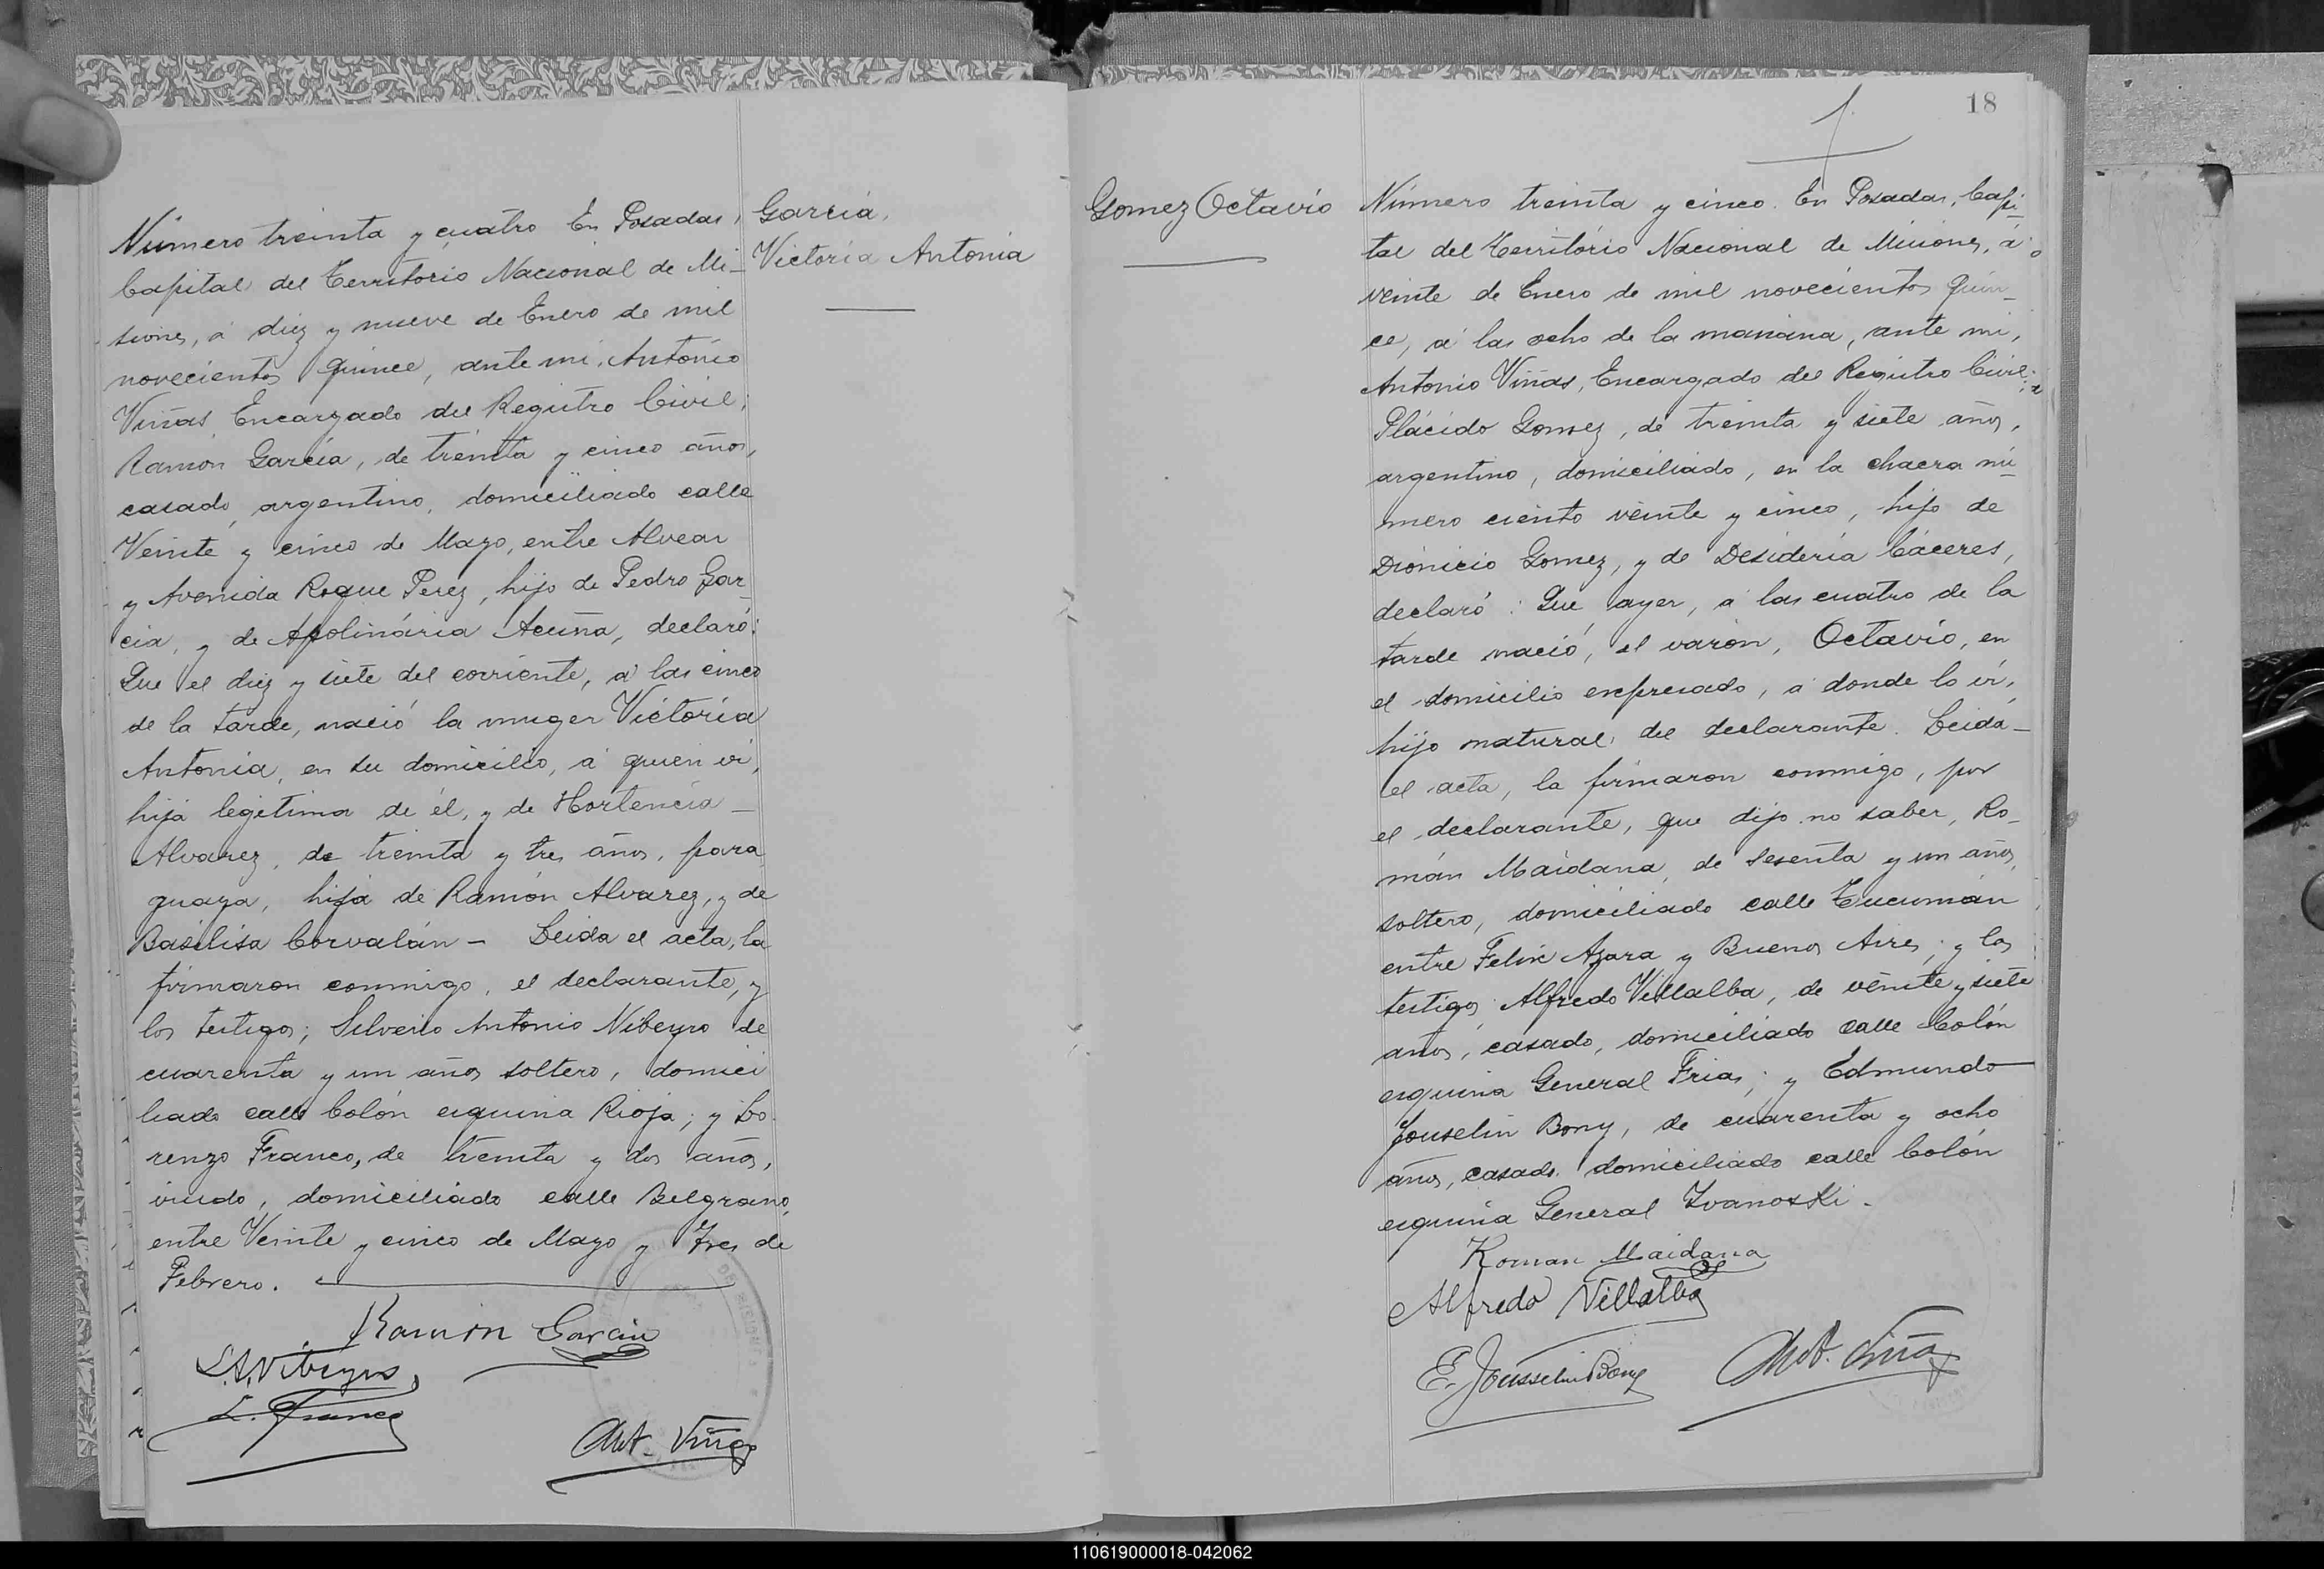 Número treinta y cuatro En Posadas,
Capital del Territorio Nacional de Mi-
siones, á diez y nueve de Enero de mil
novecientos quince, ante mi, Antonio
Viñas, Encargado del Registro Civil;
Ramón García, de treinta y cinco años,
casado, argentino, domiciliado calle
Veinte y cinco de Mayo, entre Alvear
y Avenida Roque Perez, hijo de Pedro Gar-
cia, y de Apolinária Acuña, declaró:
Que el diez y siete del corriente, á las cinco
de la tarde, nació la muger Victoria
Antonia, en su domicilio, á quien vi,
hija legítima de él, y de Hortencia -
Alvarez, de treinta y tres años, para
guaya, hija de Ramón Alvarez, y de
Basilisa Corvalán - Leida el acta, la
firmaron conmigo, el declarante, y
los testigos; Silverio Antonio Nibeyro de
cuarenta y un años soltero, domici
liado calle Colón esquina Rioja; y Lo-
renzo Franco, de treinta y dos años,
viudo, domiciliado calle Belgrano,
entre Veinte y cinco de Mayo y Tres de
Febrero.
Ramón García
S.A. Nibeyro
L. Franco
Ant. Viñas
García,
Victoria Antonia
18
Gomez Octavio
Número treinta y cinco. En Posadas, Capi-
tal del Territorio Nacional de Misiones, á
veinte de Enero de mil novecientos quin-
ce, á las ocho de la mañana, ante mi,
Antonio Viñas, Encargado del Registro Civil;
Plácido Gomez, de treinta y siete años,
argentino, domiciliado, en la chacra nú-
mero ciento veinte y cinco, hijo de
Dionicio Gomez, y de Desideria Cáceres,
declaró: Que, ayer, á las cuatro de la
tarde nació, el varón, Octavio, en
el domicilio expresado, á donde lo vi,
hijo natural del declarante. Leida -
el acta, la firmaron conmigo, por
el declarante, que dijo no saber, Ro-
mán Maidana, de sesenta y un años,
soltero, domiciliado calle Tucumán
entre Felix Azara y Buenos Aires; y los
testigos: Alfredo Villalba, de veinte y siete
años, casado, domiciliado calle Colón
esquina General Frias; y Edmundo
Jouselin Bony, de cuarenta y ocho
años, casado domiciliado calle Colón
esquina General Ivanoski.
Roman Maidana
Alfredo Villalba
E. Jousselin Bony
Ant. Viñas
110619000018-042062